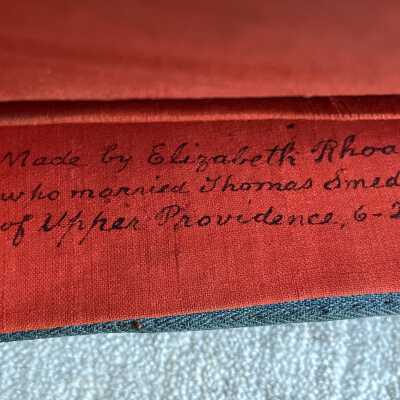 Made by Elizabeth Rhoa
who married Thomas Smed
of Upper Providence, 6-2